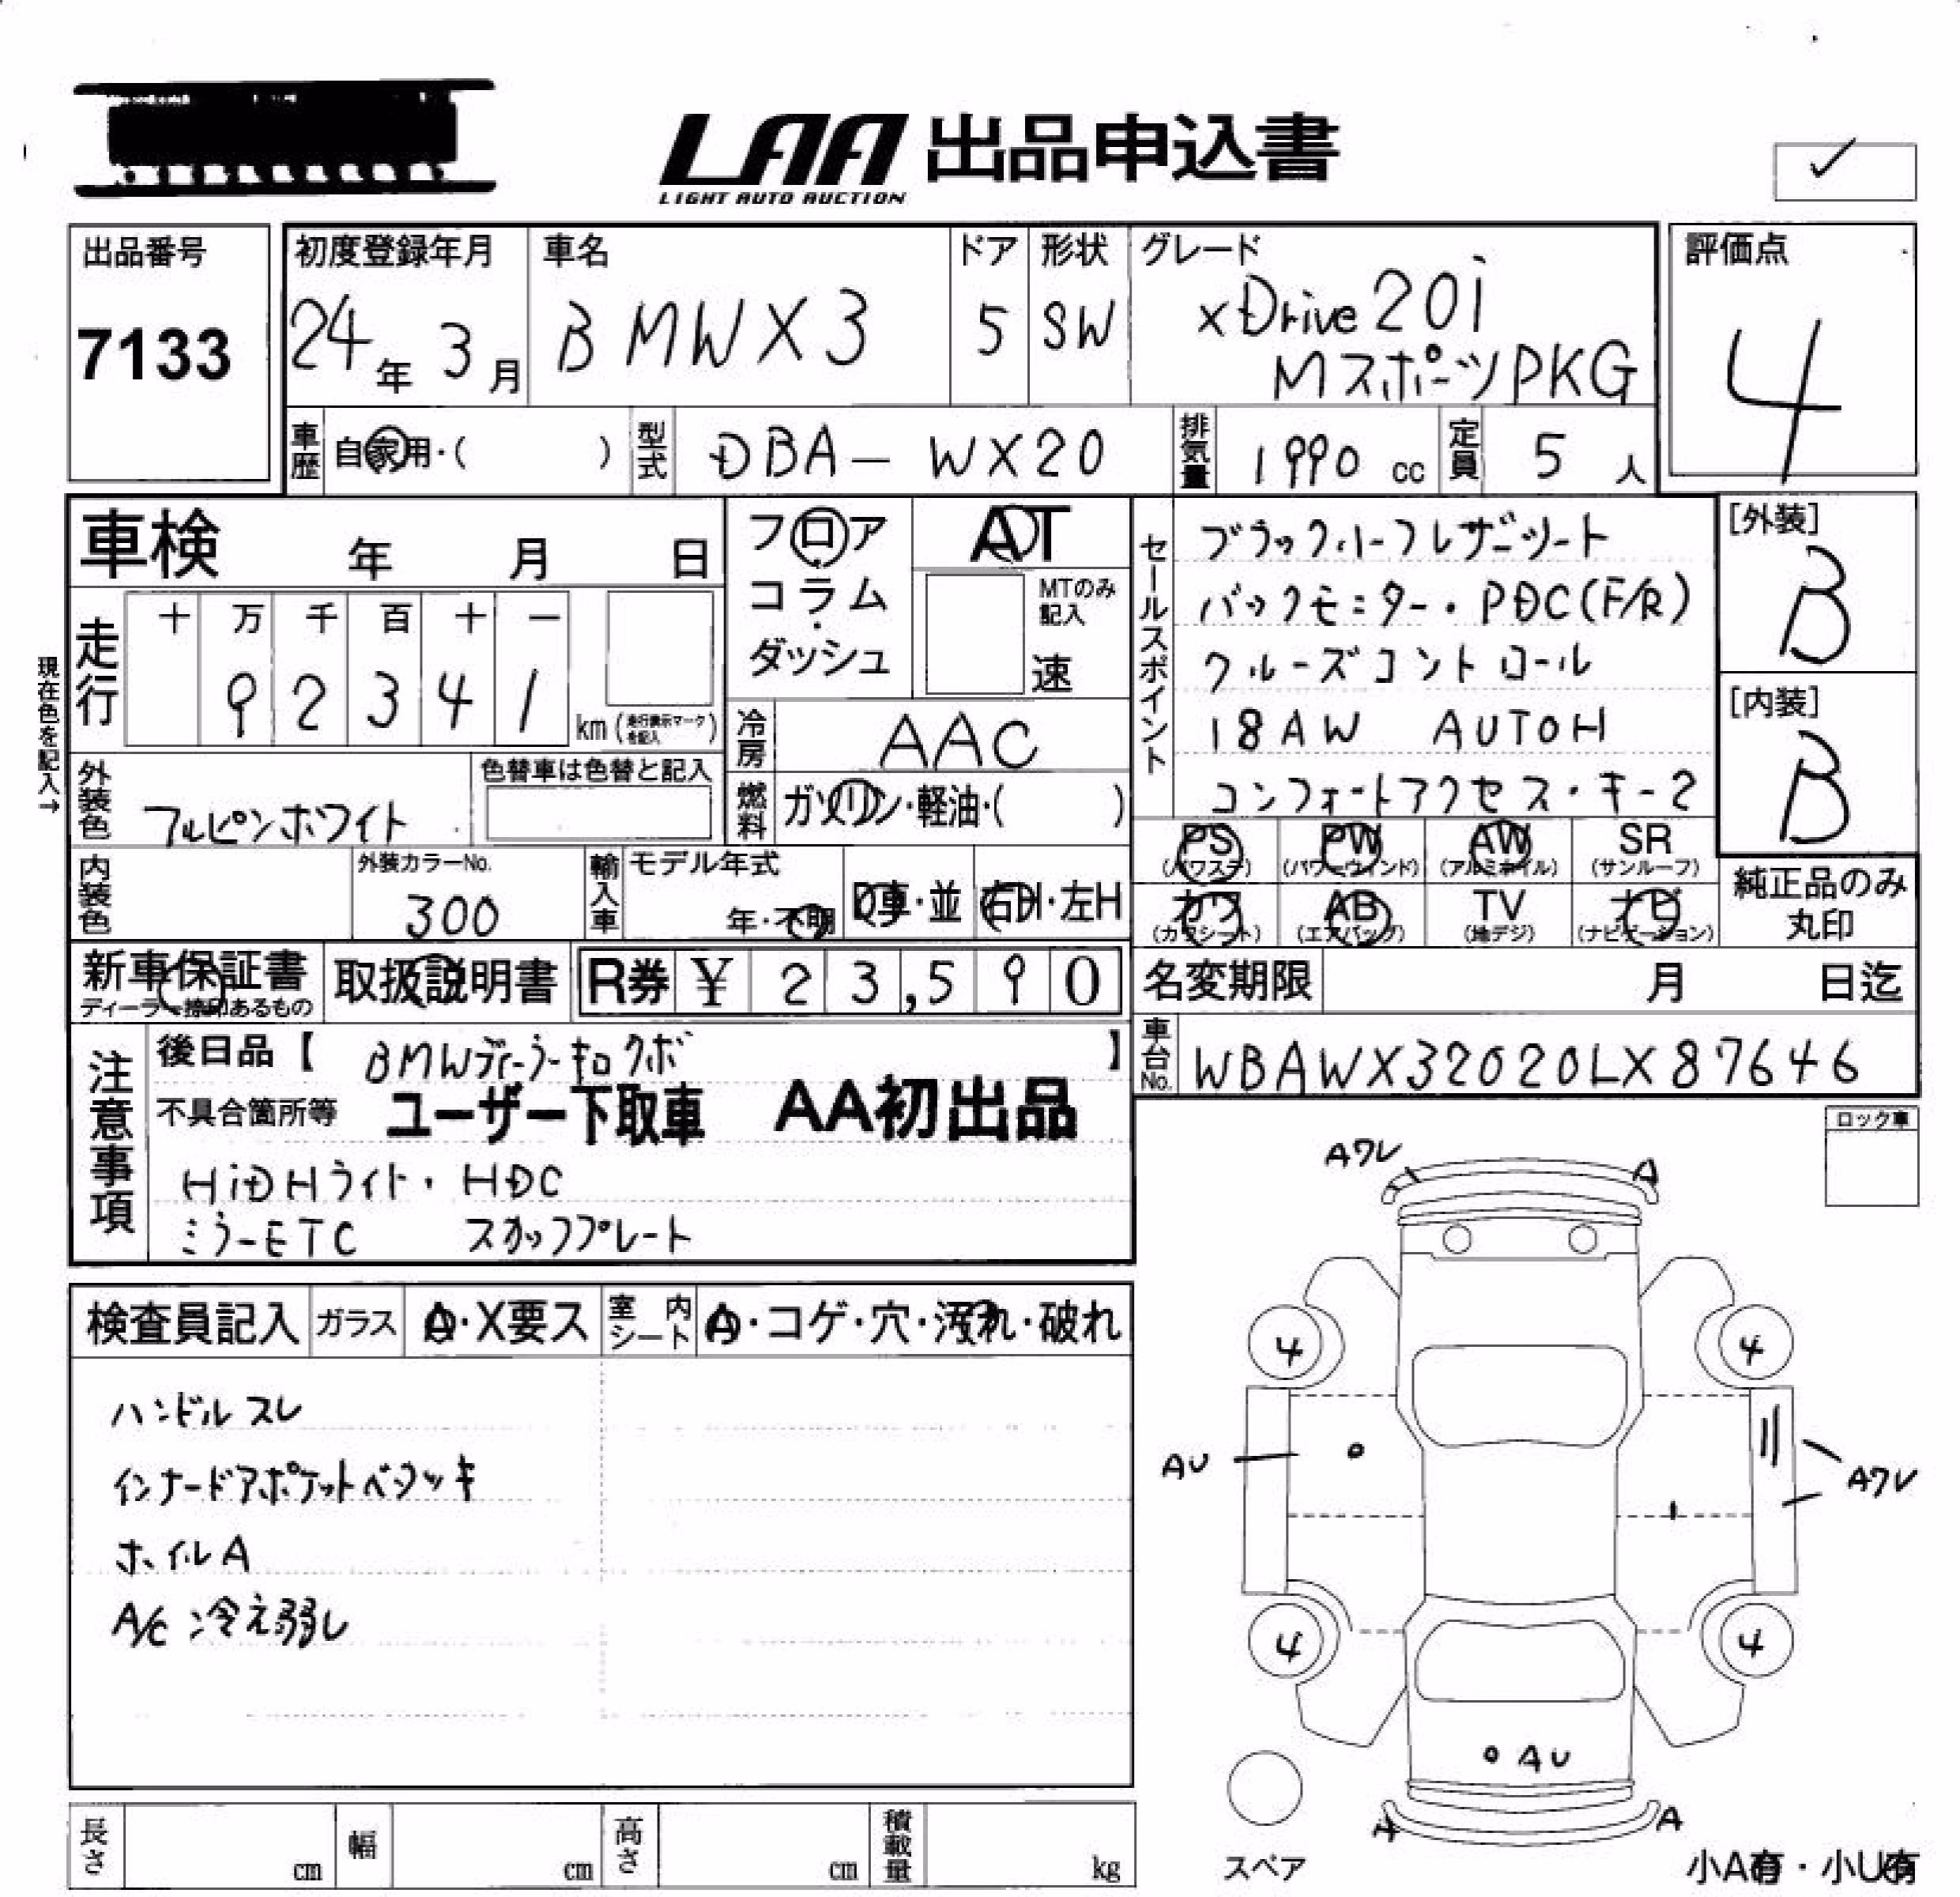 LAA 出品申込書
LIGHT AUTO AUCTION
✓
出品番号
7133
初度登録年月
24年 3月
車名
BMW X3
ドア
5
形状
SW
グレード
xDrive20i
MスポーツPKG
評価点
4
車歴 自家用・( )
型式 DBA-WX20
排気量 1990 cc
定員 5 人
車検 年 月 日
フロア・コラム・ダッシュ
AT
MTのみ記入
速
セールスポイント
ブラックハーフレザーシート
バックモニター・PDC(F/R)
クルーズコントロール
18AW AUTOH
コンフォートアクセス・キー2
[外装]
B
[内装]
B
現在色を記入→
走行
十 万 千 百 十 一
9 2 3 4 1
km (走行表示マークを記入)
冷房 AAC
外装色 アルピンホワイト
色替車は色替と記入
燃料 ガソリン・軽油・( )
PS (パワステ)
PW (パワーウィンド)
AW (アルミホイル)
SR (サンルーフ)
カワ (カワシート)
AB (エアバッグ)
TV (地デジ)
ナビ (ナビゲーション)
純正品のみ丸印
内装色
外装カラーNo.
300
輸入車
モデル年式
年・不明
D車・並
右H・左H
新車保証書
ディーラー捺印あるもの
取扱説明書
R券 ¥ 23,590
名変期限 月 日迄
車台No. WBAWX32020LX87646
注意事項
後日品【 BMWディーラーキロクボ 】
不具合箇所等 ユーザー下取車 AA初出品
HiDHライト・HDC
ミラーETC スカッフプレート
ロック車
検査員記入
ガラス A・X要ス
室内シート A・コゲ・穴・汚れ・破れ
ハンドルスレ
インナードアポケットベタツキ
ホイルA
A/C冷え弱し
Aワレ
A
4
4
AU
Aワレ
4
4
AU
A
A
スペア
小A有・小U有
長さ cm
幅 cm
高さ cm
積載量 kg